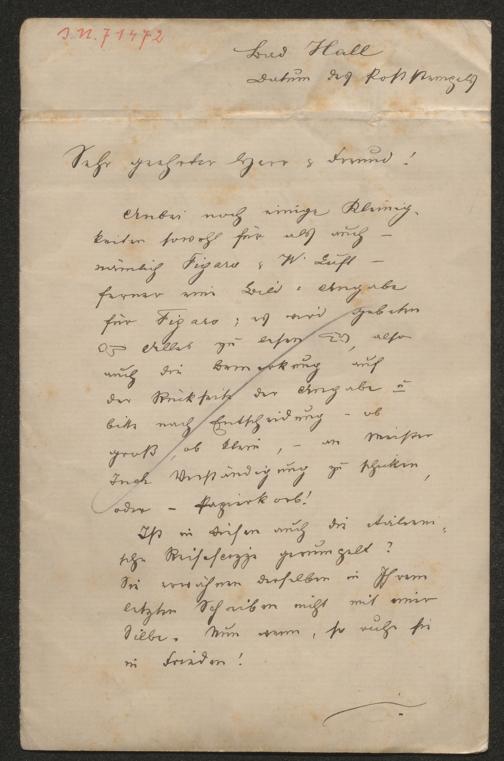 J.N. 71472
Bad Hall
Datum des Poststempels
Sehr geehrter Herr & Freund!
Anbei noch einige Kleinig-
keiten sowohl für als auch –
nämlich Figaro & W. Luft –
ferner eine Bild: Angabe
für Figaro; es wird gebeten
Alles zu lesen, also
auch die Bemerkung auf
der Rückseite der Angabe u
bitte nach Entscheidung – ob
groß, ob klein, – an Meister
Verständigung zu schicken,
oder – Papierkorb!
Ist in diesen auch die italieni-
sche Reiseskizze gerumpelt?
Sie erwähnen derselben in Ihrem
letzten Schreiben nicht mit einer
Silbe. Nun wenn, so ruhe sie
in Frieden!